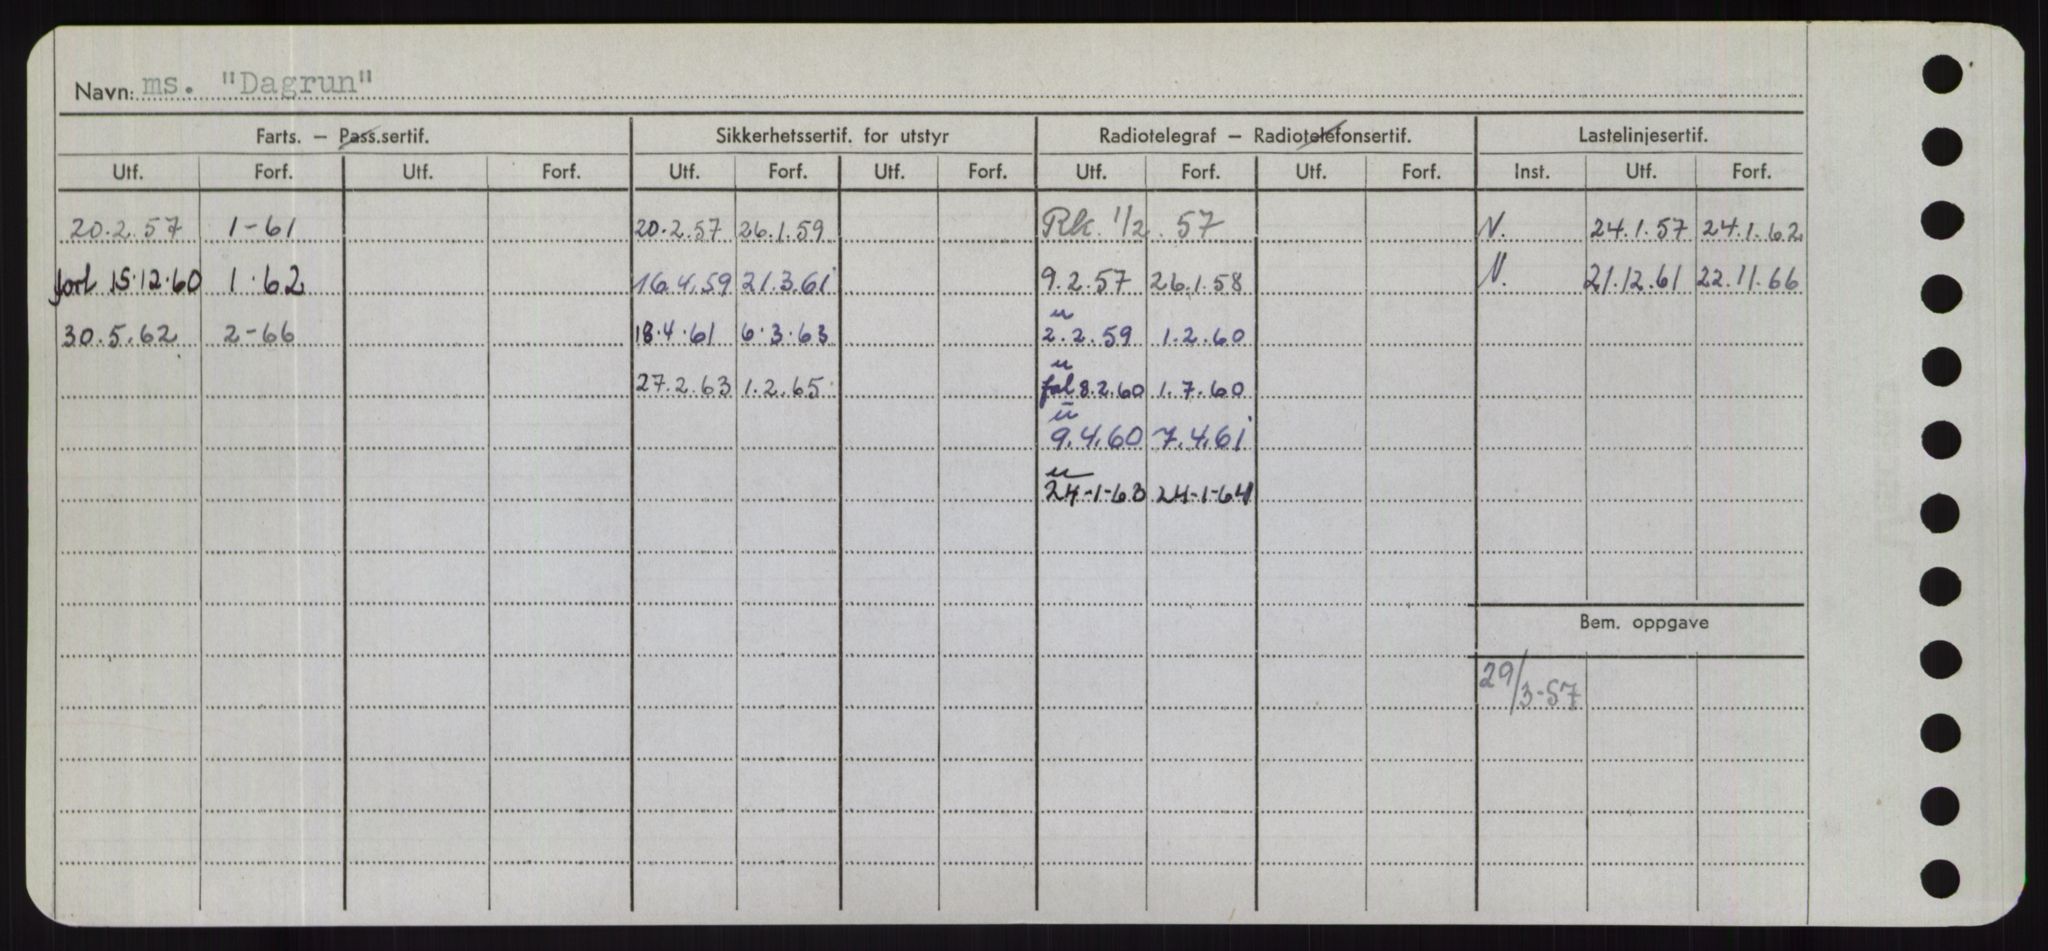 Navn: ms. "Dagrun"
Farts. — Pass.sertif. Sikkerhetssertif. for utstyr Radiotelegraf — Radiotelefonsertif. Lastelinjesertif.
Utf. Forf. Utf. Forf. Utf. Forf. Utf. Forf. Utf. Forf. Utf. Forf. Inst. Utf. Forf.
20.2.57 1-61 20.2.57 26.1.59 Rk. 1/2. 57 N. 24.1.57 24.1.62
forl 15.12.60 1.62 16.4.59 21.3.61 9.2.57 26.1.58 N. 21.12.61 22.11.66
30.5.62 2-66 18.4.61 6.3.63 2.2.59 1.2.60
27.2.63 1.2.65 8.2.60 1.7.60
9.4.60 7.4.61
24-1-63 24-1-64
Bem. oppgave
29/3-57